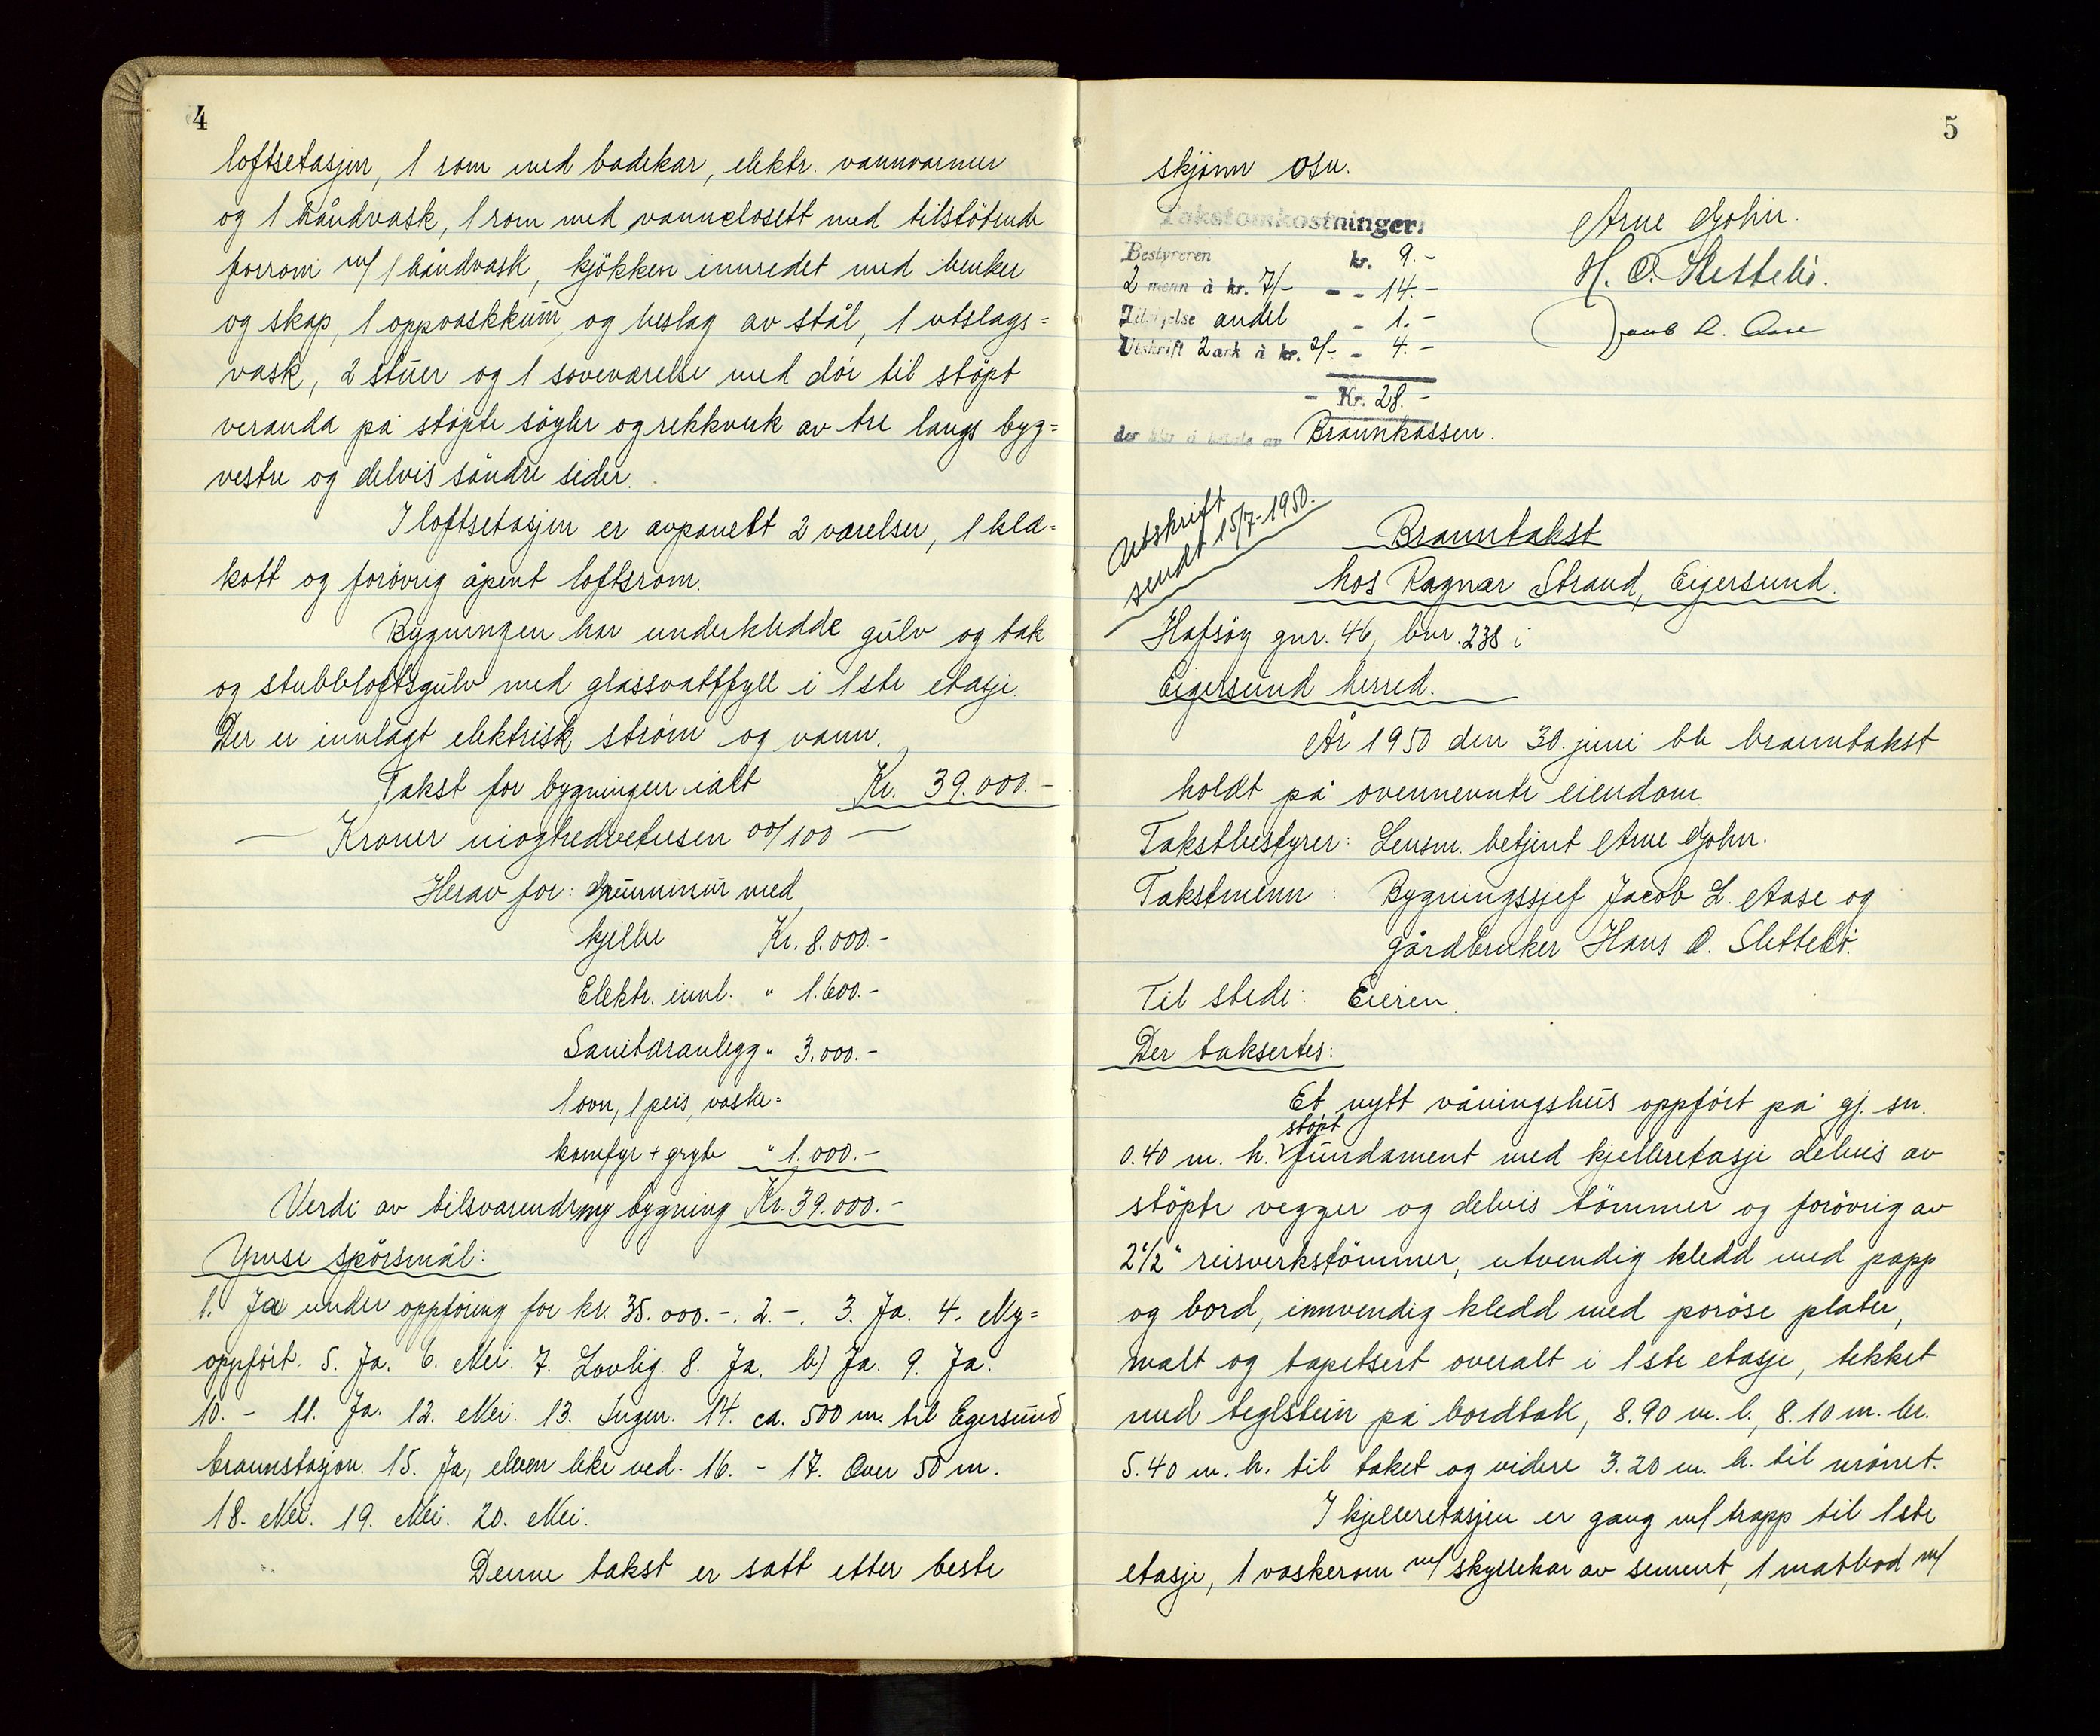 4
loftsetasjen, 1 rom med badekar, elektr. vannvarmer
og 1 håndvask, 1 rom med vannclosett med tilstötende
forrom m/ 1 håndvask, kjökken innredet med benker
og skap, 1 oppvaskkum og beslag av stål, 1 utslags=
vask, 2 stuer og 1 soveværelse med dör til stöpt
veranda på stöpte söyler og rekkverk av tre langs byg=
vestre og delvis söndre sider.
I loftsetasjen er avpanelt 2 værelser, 1 kle=
kott og forövrig åpent loftsrom.
Bygningen har underkledde gulv og tak
og stubbloftsgulv med glassvattfyll i 1ste etasje.
Der er innlagt elektrisk ström og vann.
Takst for bygningen ialt Kr. 39.000.-
— Kroner niogtredvetusen 00/100 —
Herav for: Grunnmur med
kjeller Kr. 8.000.-
Elektr. innl. " 1.600.-
Sanitæranlegg " 3.000.-
1 ovn, 1 peis, vaske=
komfyr + gryte " 1.000.-
Verdi av tilsvarende ny bygning Kr. 39.000.-
Ymse spörsmål:
1. Ja under oppföring for kr. 35.000.-. 2. -. 3. Ja. 4. Ny=
oppfört. 5. Ja. 6. Nei. 7. Lovlig. 8. Ja. b) Ja. 9. Ja.
10. - 11. Ja. 12. Nei. 13. Ingen. 14. ca. 500 m. til Egersund
brannstasjon. 15. Ja, elven like ved. 16. - 17. Over 50 m.
18. Nei. 19. Nei. 20. Nei.
Denne takst er satt etter beste
5
skjönn osv.
Takstomkostninger:
Bestyreren kr. 9.-
2 menn à kr. 7/- - - 14.-
andel - 1.-
Utskrift 2 ark à kr. 2/- - 4.-
- Kr. 28.-
der blir å betale av Brannkassen.
Arne Gohn.
H. O. Slettebö.
Jacob L. Aase
Utskrift
sendt 15/7-1950.
Branntakst
hos Ragnar Strand, Eigersund.
Hafsöy gnr. 46, bnr. 238 i
Eigersund herred.
År 1950 den 30. juni ble branntakst
holdt på ovennevnte eiendom.
Takstbestyrer: Lensm. betjent Arne Gohn.
Takstmenn : Bygningssjef Jacob L. Aase og
gårdbruker Hans O. Slettebö.
Til stede: Eieren.
Der taksertes:
Et nytt våningshus oppfört på gj. sn.
stöpt
0.40 m. h. fundament med kjelleretasje delvis av
stöpte vegger og delvis tömmer og forövrig av
2 1/2" reisverkstömmer, utvendig kledd med papp
og bord, innvendig kledd med poröse plater,
malt og tapetsert overalt i 1ste etasje, tekket
med teglstein på bordtak, 8.90 m. l., 8.10 m. br.
5.40 m. h. til taket og videre 3.20 m. h. til mönet.
I kjelleretasjen er gang m/ trapp til 1ste
etasje, 1 vaskerom m/ skyllekar av sement, 1 matbod m/